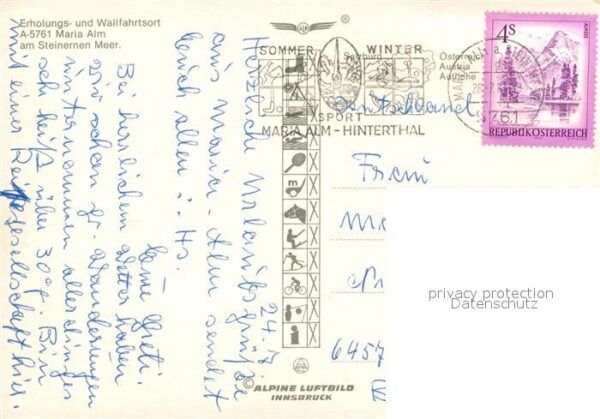 Erholungs- und Wallfahrtsort
A-5761 Maria Alm
am Steinernen Meer.
SOMMER WINTER
Salzburg
SPORT
MARIA ALM - HINTERTHAL
Österreich
Austria
Autriche
4S
REPUBLIK ÖSTERREICH
5761
24.7.
Herzliche Urlaubsgrüße
aus Maria-Alm sendet
Euch allen
Eure Greti.
Bei herrlichem Wetter haben
wir schon gr. Wanderungen
unternommen allerdings
sehr heiß über 30°! Bin
mit einer Reisegesellschaft hier.
Deutschland
Frau
6457
privacy protection
Datenschutz
© ALPINE LUFTBILD
INNSBRUCK